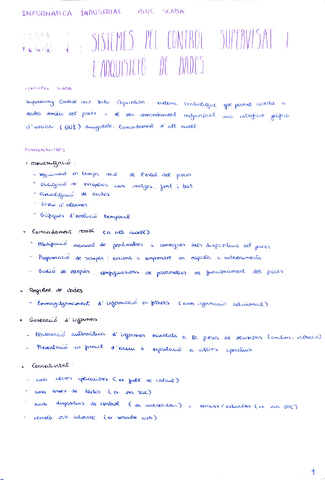 INFORMÀTICA INDUSTRIAL BLOC SCADA
SISTEMES PEL CONTROL SUPERVISAT I
L'ADQUISICIÓ DE DADES
CONCEPTE SCADA
Supervisory Control and Data Acquisition: sistema centralitzat que permet accedir a
dades remotes del procés i el seu comandament mitjançant una interfície gràfica
d'usuari (GUI) amigable. Comandament d'alt nivell
FUNCIONALITATS
• Monitorització:
- Seguiment en temps real de l'estat del procés
- sinòptics amb imatges, font i text
- Visualització de dades
- d'alarmes
- Gràfiques d'evolució temporal
• Comandament remot (a alt nivell)
- Manipulació manual de paràmetres i consignes dels dispositius del procés
- Programació de scripts: accions a emprendre en resposta a esdeveniments
- Gestió de receptes: configuracions de paràmetres de funcionament del procés
• Registre de dades
- Emmagatzematment d'informació en fitxers (amb informació addicional)
• Generació d'informes
- Generació automàtica d'informes orientats a la presa de decisions
- Presentació en format d'arxiu o exportació a altres
• Connectivitat:
- amb altres aplicacions (ex. full de càlcul)
- amb bases de dades (ex. via SQL)
- amb dispositius de control (ex. controladors) i sensors/actuadors (ex. via OPC)
- remota via internet (ex. servidor web)
1